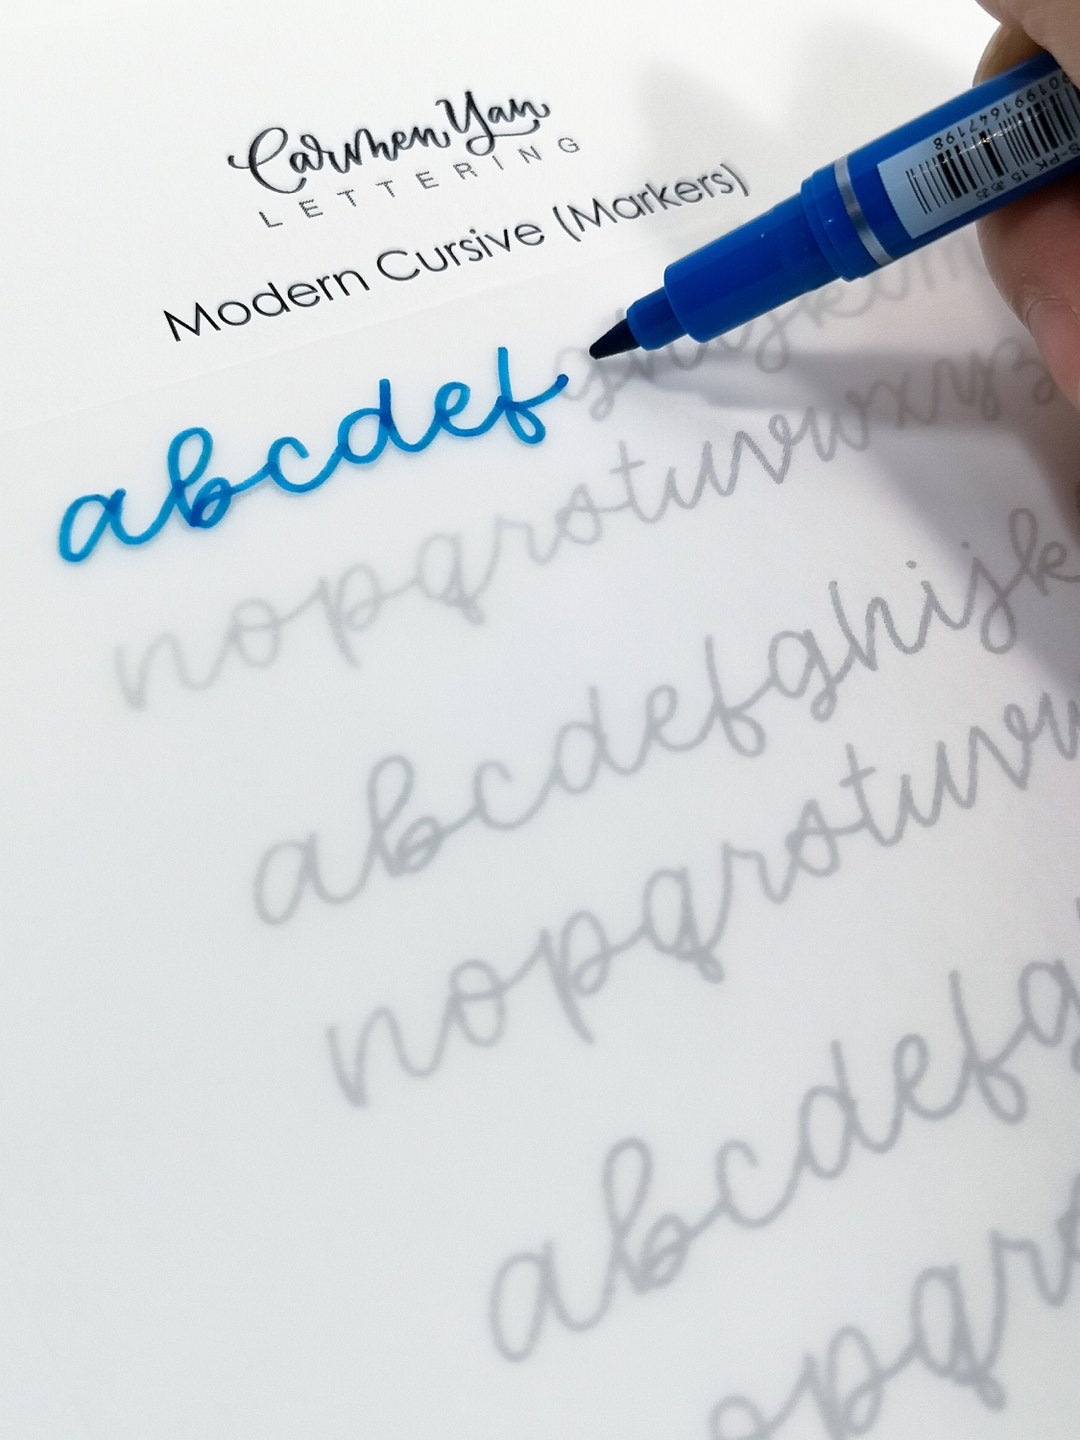 Carmen Yan
LETTERING
Modern Cursive (Markers)
abcdefghijklm
nopqrstuvwxyz
abcdefghijk
nopqrstuvw
abcdefg
opqrs